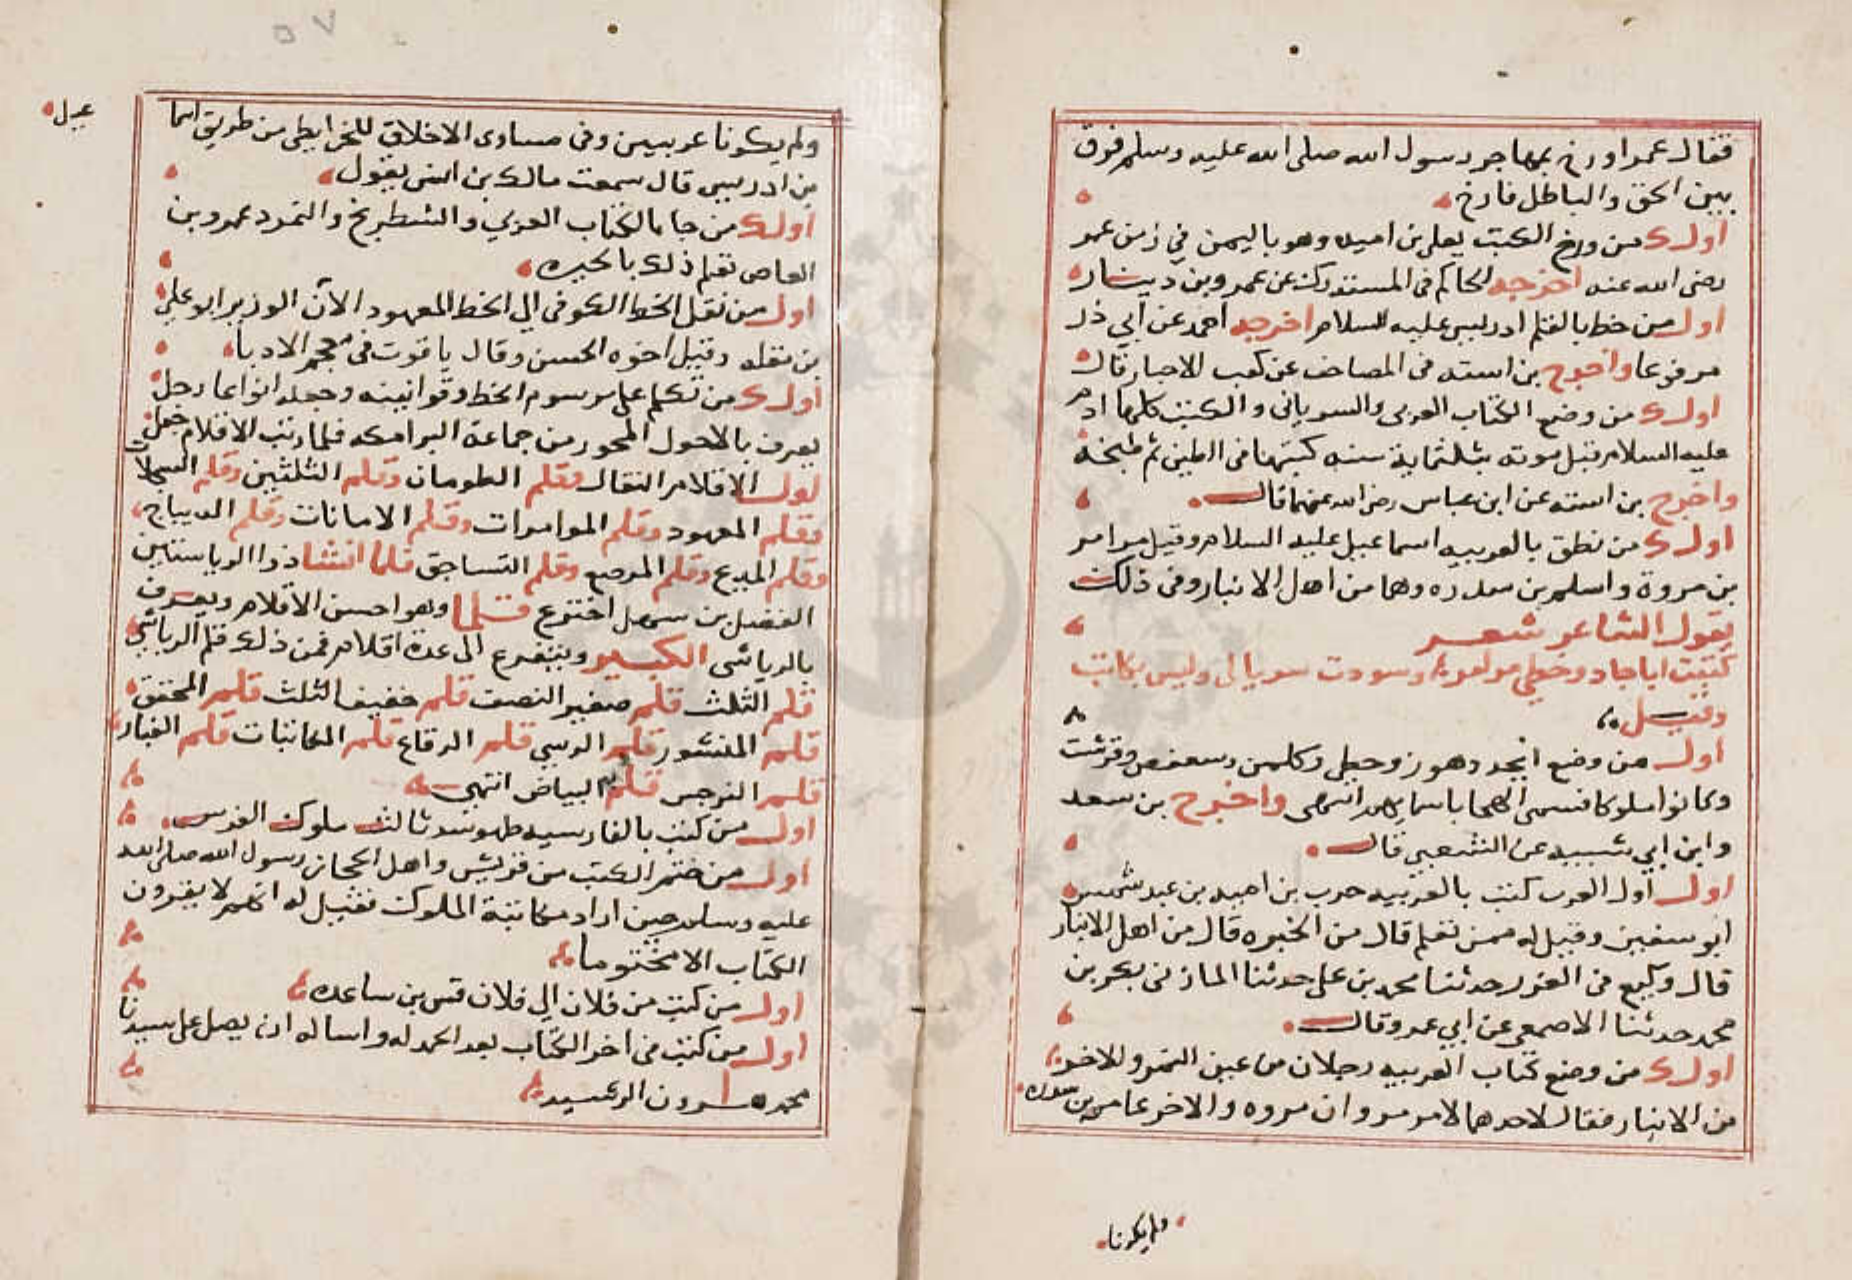 فقال عمر اورخ بمهاجر رسول الله صلى الله عليه وسلم فرق
بين الحق والباطل فارخ
اول من ورخ الكتب يعلى بن اميه وهو باليمن في زمن عمر
رضى الله عنه اخرجه الحاكم فى المستدرك عن عمرو بن دينار
اول من خط بالقلم ادريس عليه السلام اخرجه احمد عن ابي ذر
مرفوعا واخرج بن استه فى المصاحف عن كعب الاحبار قال
اول من وضع الكتاب العربى والسريانى والكتب كلها ادم
عليه السلام قبل موته بثلثماية سنه كتبها فى الطين ثم طبخه
واخرج بن استه عن ابن عباس رضى الله عنهما قال
اول من نطق بالعربيه اسماعيل عليه السلام وقيل مرامر
بن مروة واسلم بن سدره وهما من اهل الانبار وفى ذلك
يقول الشاعر شعر
كتبت اباجاد وخطي مرامر وسودت سربالى وليس بكاتب
وقيل
اول من وضع ابجد وهوز وحطى وكلمن وسعفص وقرشت
وكانوا ملوكا فسمى الهجا باسمايهم انتهى واخرج بن سعد
وابن ابي شيبه عن الشعبي قال
اول اول العرب كتب بالعربيه حرب بن اميه بن عبد شمس
ابو سفين وقيل له ممن تعلم قال من الحيره قال من اهل الانبار
قال وكيع فى الغرر حدثنا محمد بن على حدثنا المازنى بكر بن
محمد حدثنا الاصمعى عن ابي عمر وقال
اول من وضع كتاب العربيه رجلان من عين التمر والاخر
من الانبار فقال لاحدهما لامر مروان مروه والاخر عامر بن سدره
فلم يكونا
ولم يكونا عربيين وفى مساوى الاخلاق للخرايطى من طريق اسما
عيل
بن ادريس قال سمعت مالك بن انس يقول
اول من جا بالكتاب العربي والشطرنج والنرد عمرو بن
العاص تعلم ذلك بالحيره
اول من نقل الخط الكوفى الى الخط المعهود الان الوزير ابو علي
بن مقله وقيل اخوه الحسن وقال ياقوت فى معجم الادبا
اول من تكلم على رسوم الخط وقوانينه وجعله انواعا رجل
يعرف بالاحول المحرر من جماعة البرامكه فلما رتب الاقلام جعل
اول الاقلام الثقال فقلم الطومار وقلم الثلثين وقلم السجلات
وقلم المعهود وقلم الموامرات وقلم الامانات وقلم الديباج
وقلم المديح وقلم المرصع وقلم التساجق فلما انشا ذوا الرياستين
الفضل بن سهل اخترع قلما وهو احسن الاقلام ويعرف
بالرياشى الكبير ويتفرع الى عدة اقلام فمن ذلك قلم الرياشي
قلم الثلث قلم صغير النصف قلم خفيف الثلث قلم المحقق
قلم المنثور قلم الوسي قلم الرقاع قلم المكاتبات قلم الغبار
قلم النرجس قلم البياض انتهى
اول من كتب بالفارسيه طهومرث ثالث ملوك الفرس
اول من ختم الكتب من قريش واهل الحجاز رسول الله صلى الله
عليه وسلم حين اراد مكاتبة الملوك فقيل له انهم لا يقرون
الكتاب الا مختوما
اول من كتب من فلان الي فلان قس بن ساعده
اول من كتب فى اخر الكتاب بعد الحمد له واساله ان يصل على سيدنا
محمد هرون الرشيد